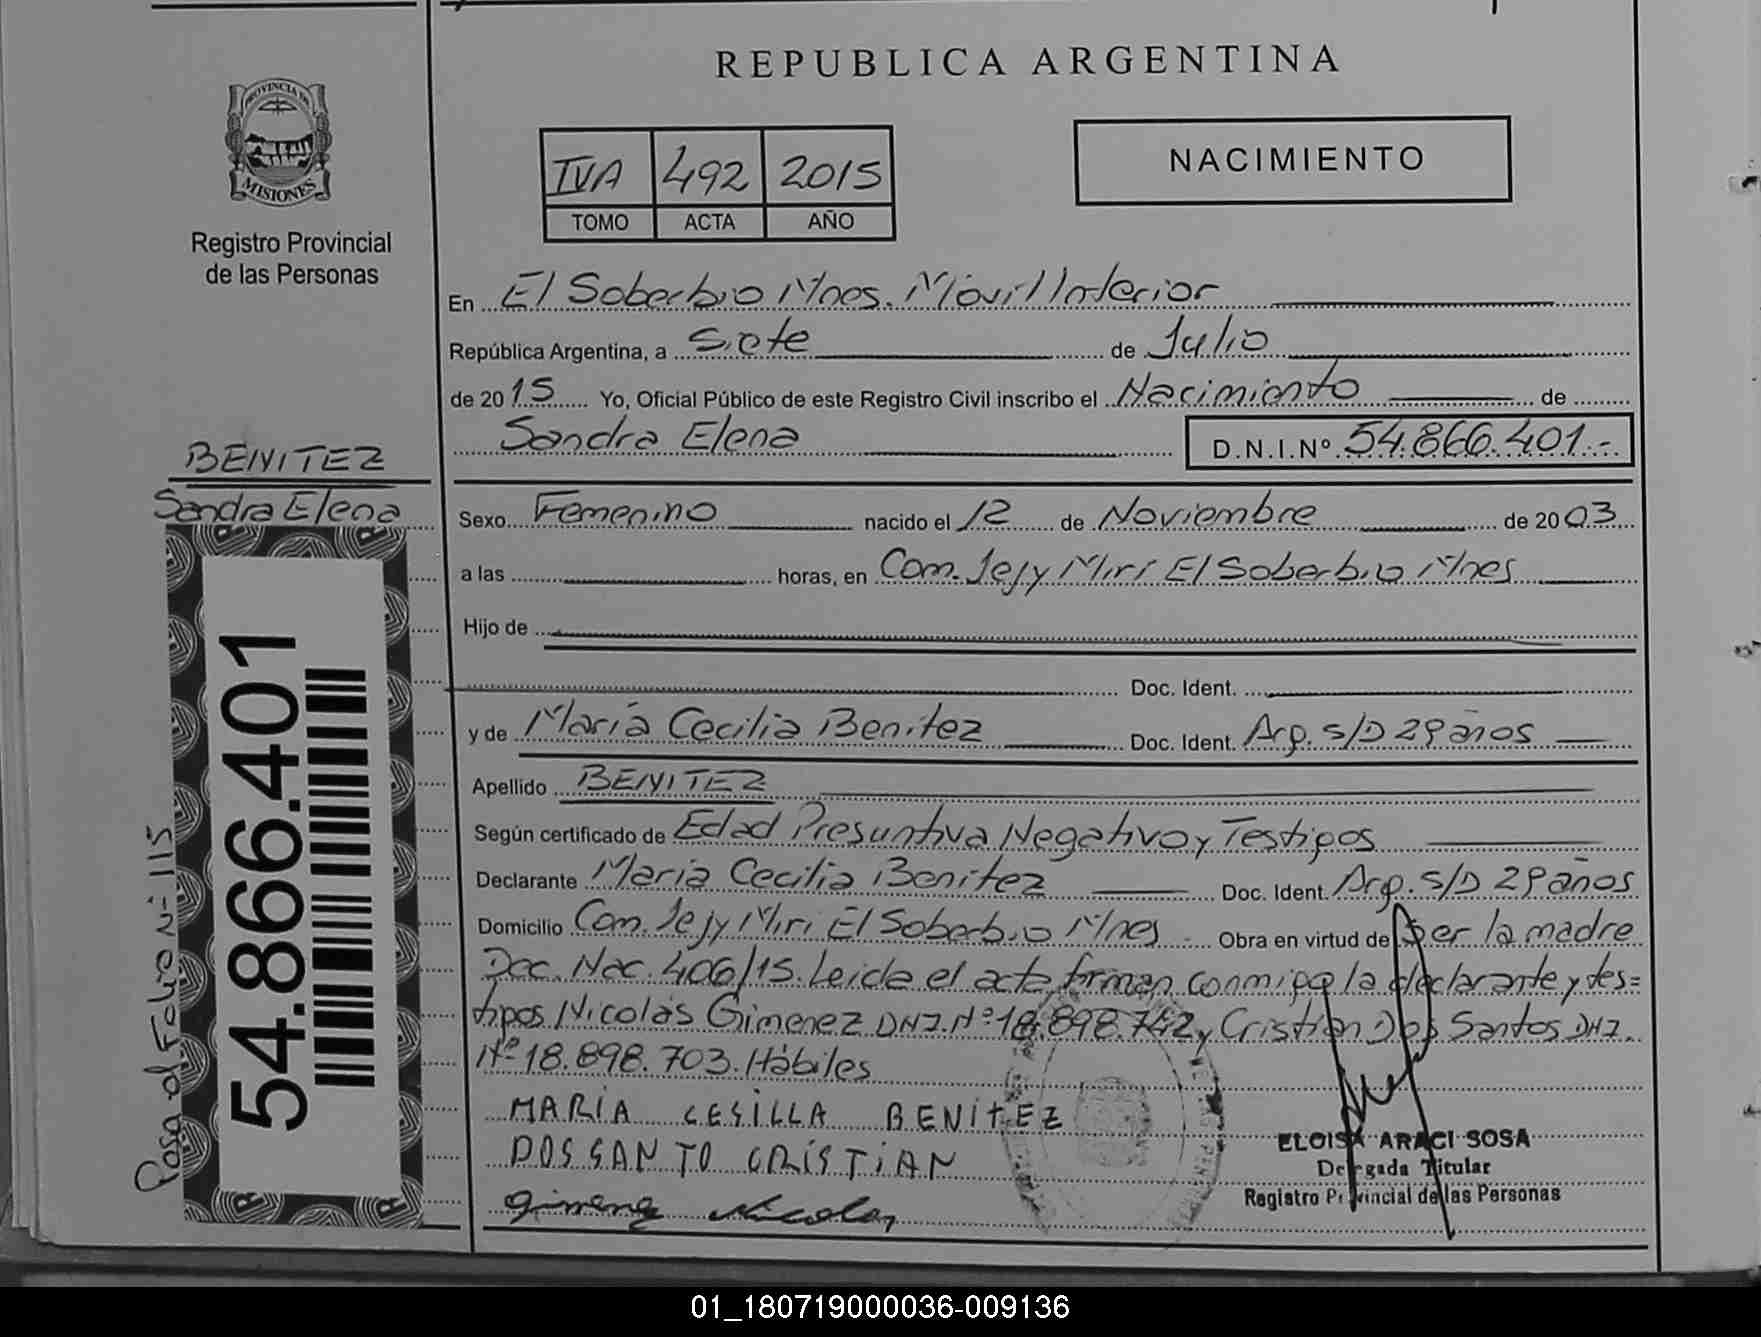 REPUBLICA ARGENTINA
PROVINCIA DE
MISIONES
Registro Provincial
de las Personas
IVA 492 2015
TOMO ACTA AÑO
NACIMIENTO
En El Soberbio Mnes. Móvil Interior
República Argentina, a Siete de Julio
de 2015 Yo, Oficial Público de este Registro Civil inscribo el Nacimiento de
Sandra Elena D.N.I.Nº 54.866.401.-
BENITEZ
Sandra Elena
Sexo Femenino nacido el 12 de Noviembre de 2003
a las horas, en Com. Jejy Miri El Soberbio Mnes
Hijo de
Doc. Ident.
y de María Cecilia Benitez Doc. Ident. Arg. s/D 29 años
Apellido BENITEZ
Según certificado de Edad Presuntiva Negativo y Testigos
Declarante María Cecilia Benitez Doc. Ident. Arg. s/D 29 años
Domicilio Com. Jejy Miri El Soberbio Mnes - Obra en virtud de Ser la madre
Dec. Nac. 406/15. Leida el acta firman conmigo la declarante y tes=
tigos Nicolás Gimenez DNI. Nº 18.898.742 y Cristian Dos Santos DNI.
Nº 18.898.703. Hábiles
MARÍA CESILLA BENÍTEZ
DOSSANTO CRÍSTIAN
Gimenez Nicolas
ELOISA ARACI SOSA
Delegada Titular
Registro Provincial de las Personas
54.866.401
Pasa al Folio Nº 115
01_180719000036-009136